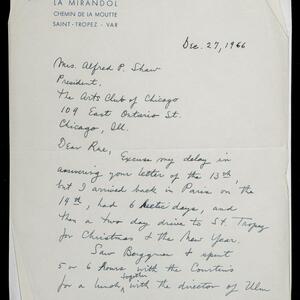 LA MIRANDOL
CHEMIN DE LA MOUTTE
SAINT-TROPEZ - VAR
Dec. 27, 1966
Mrs. Alfred P. Shaw
President.
The Arts Club of Chicago
109 East Ontario St.
Chicago, Ill.
Dear Rue, Excuse my delay in
answering your letter of the 13th,
but I arrived back in Paris on the
19th, had 6 hectic days, and
then a two day drive to St. Tropez
for Christmas & the New Year.
Saw Berggruen & spent
5 or 6 hours with the Courtens
for a lunch together with the director of Ulm